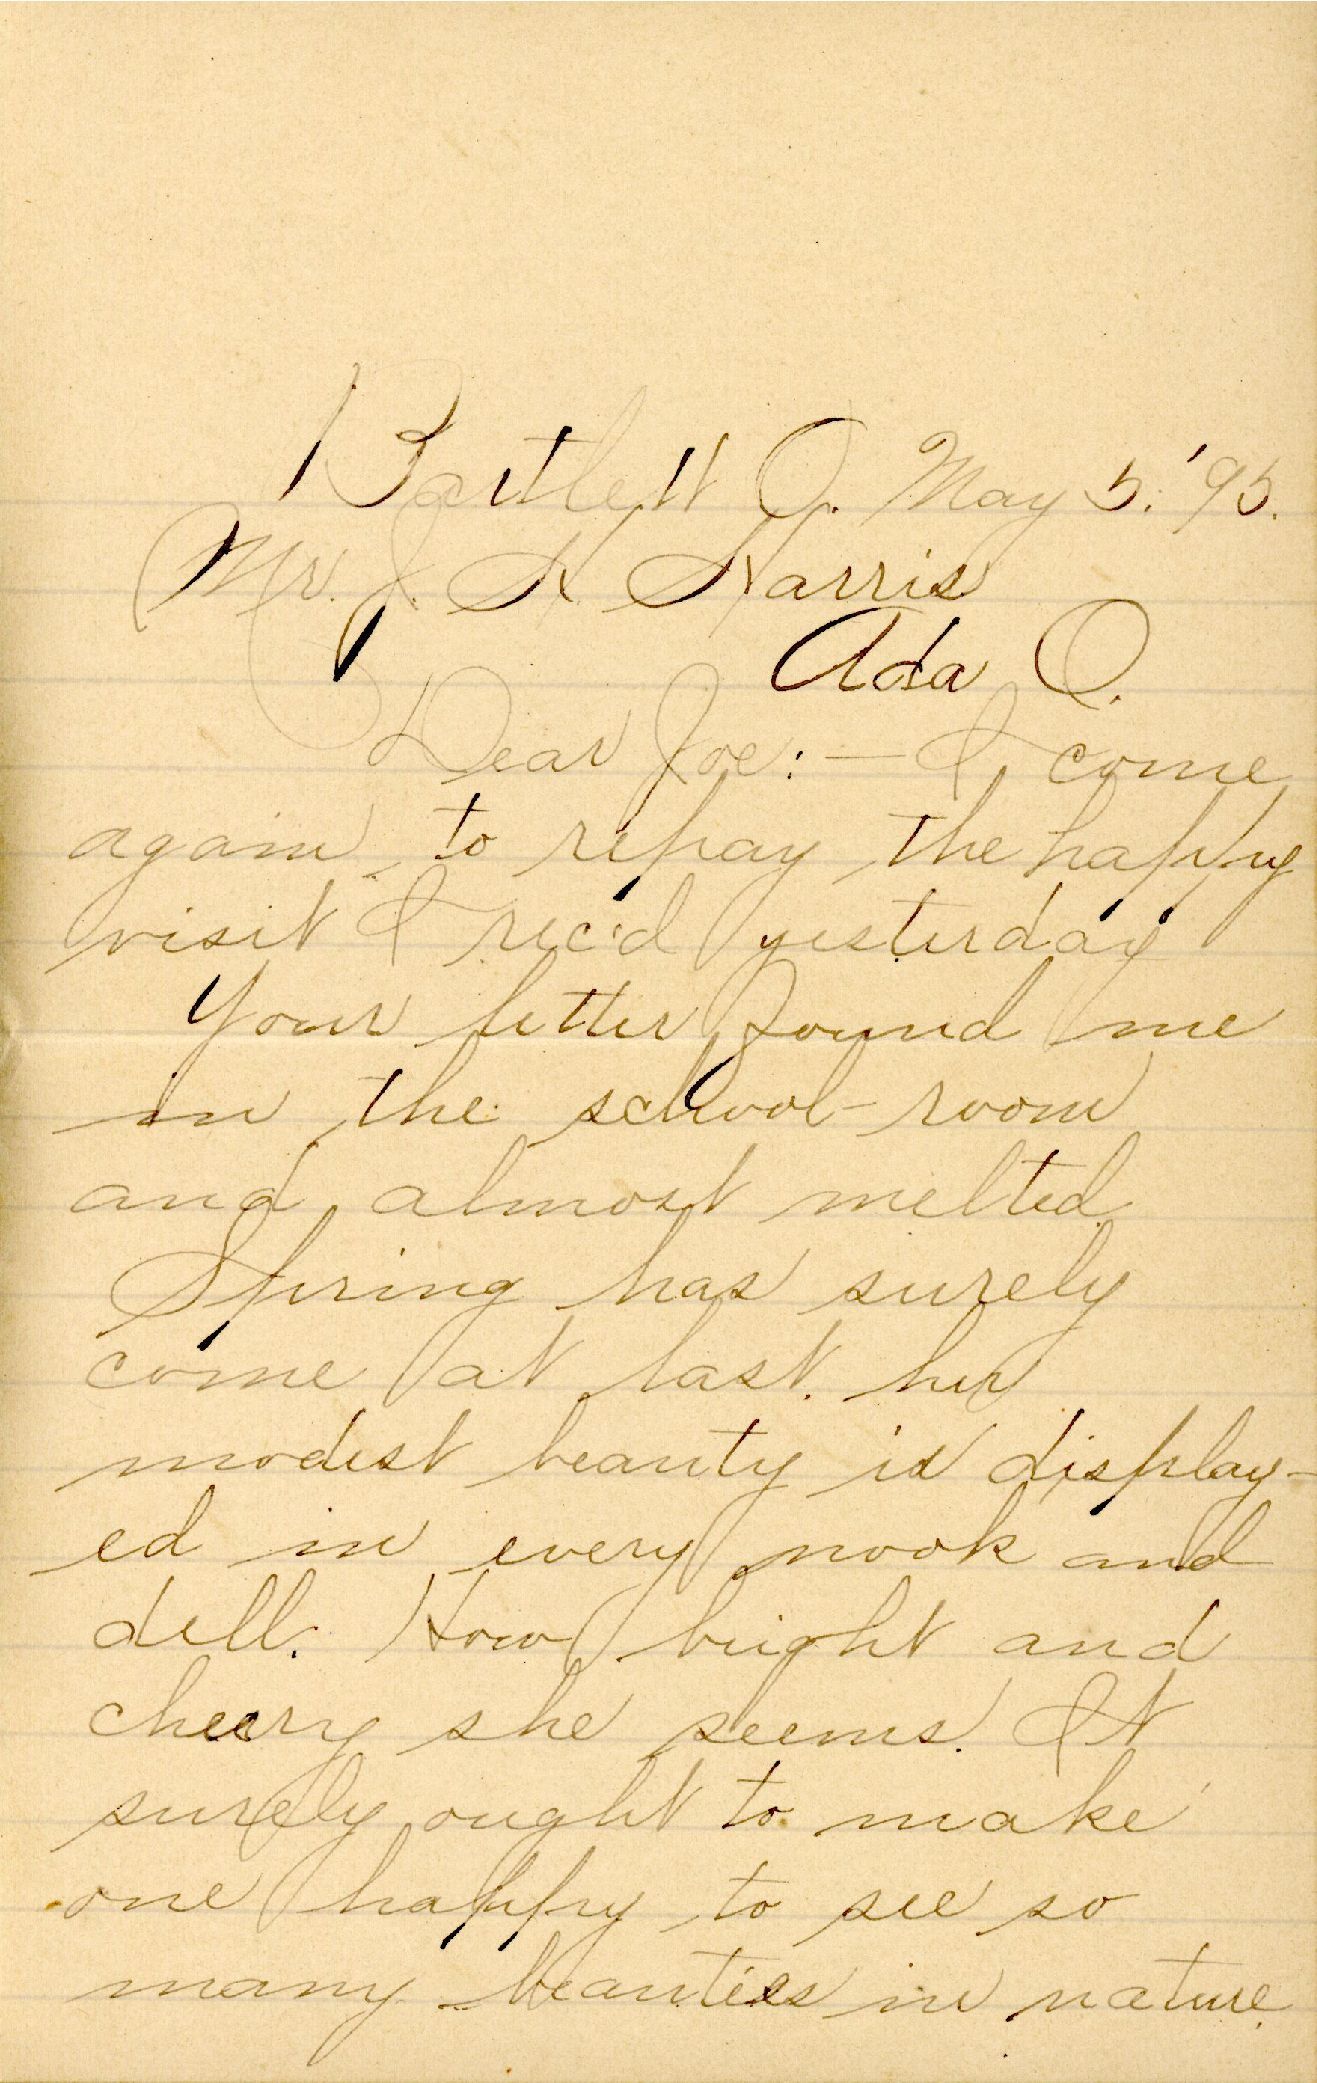 Bartlett O. May 5. '95.
Mr. J. H. Harris
Ada O.
Dear Joe: — I come
again to repay the happy
visit I rec'd yesterday
Your letter found me
in the school-room
and almost melted.
Spring has surely
come at last. her
modest beauty is display-
ed in every nook and
dell. How bright and
cheery she seems. It
surely ought to make
one happy to see so
many beauties in nature.